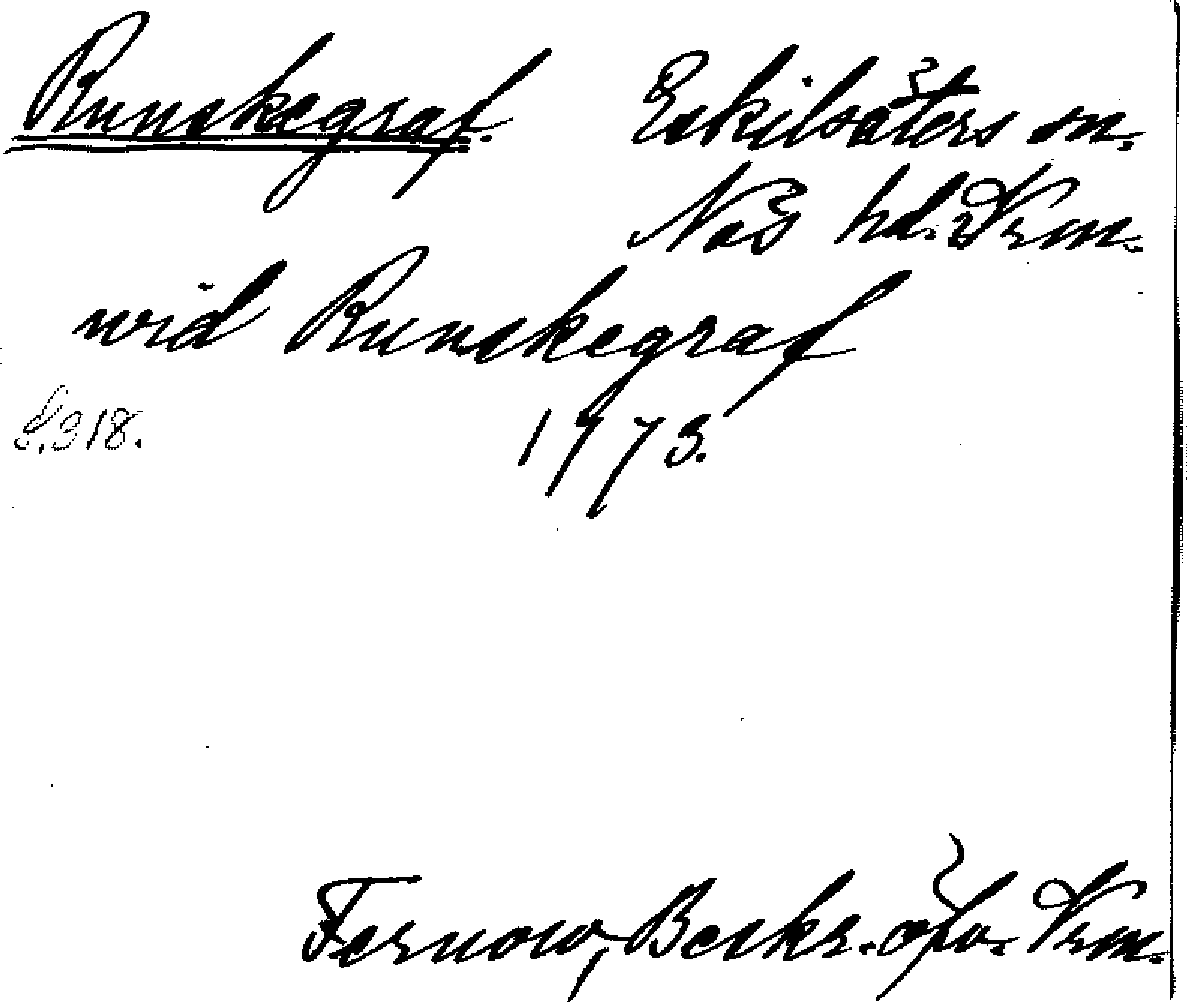 Runskegraf. Eskilsäters sn.
Näs hd. Vrm.
wid Runskegraf
S. 318. 1773.
Fernow, Beskr. öfv. Vrm.